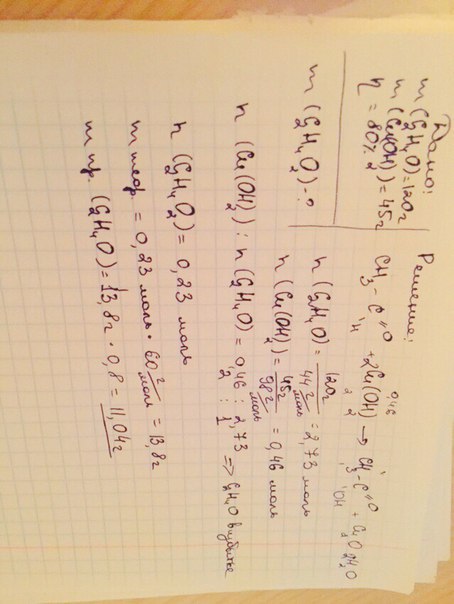 Дано:
m(C₂H₄O)=120г
m(Cu(OH)₂)=45г
η = 80%
m(C₂H₄O₂)-?
Решение:
0,46
CH₃-C=O H + 2Cu(OH)₂ → CH₃-C=O OH + Cu₂O + 2H₂O
n(C₂H₄O) = 120г / 44 г/моль = 2,73 моль
n(Cu(OH)₂) = 45г / 98 г/моль = 0,46 моль
n(Cu(OH)₂) : n(C₂H₄O) = 0,46 : 2,73 => C₂H₄O в избытке
2 : 1
n(C₂H₄O₂) = 0,23 моль
m теор. = 0,23 моль · 60 г/моль = 13,8г
m пр. (C₂H₄O) = 13,8г · 0,8 = 11,04г